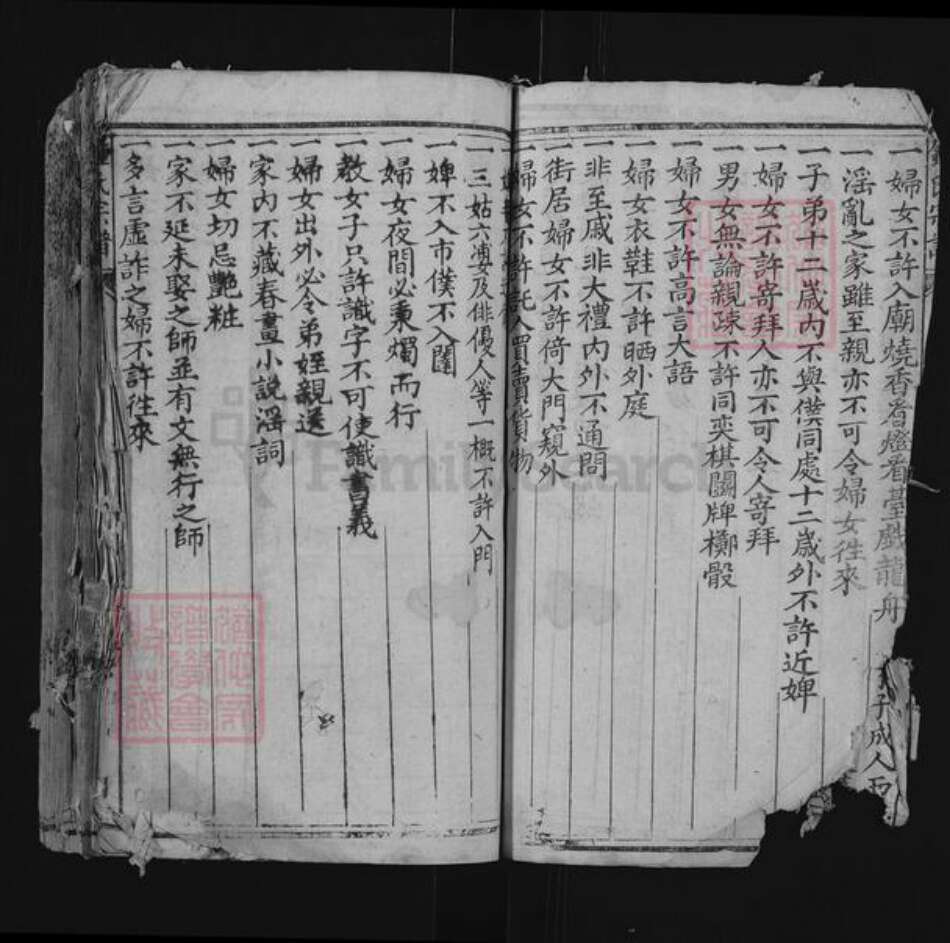 一婦女不許入廟燒香看燈看臺戲龍舟
一淫亂之家雖至親亦不可令婦女徃來
子成人而
一子弟十二歲内不與僕同處十二歲外不許近婢
一婦女不許寄拜人亦不可令人寄拜
一男女無論親疎不許同奕棋鬬牌擲骰
一婦女不許高言大語
一婦女衣鞋不許晒外庭
一非至戚非大禮内外不通問
一街居婦女不許倚大門窺外
一婦女不許託人買賣貨物
一三姑六婆及俳優人等一概不許入門
一婢不入市僕不入閨
一婦女夜間必秉燭而行
一教女子只許識字不可使識書義
一婦女出外必令弟姪親送
一家内不藏春畫小說淫詞
一婦女切忌艷粧
一家不延未娶之師並有文無行之師
一多言虚詐之婦不許徃來